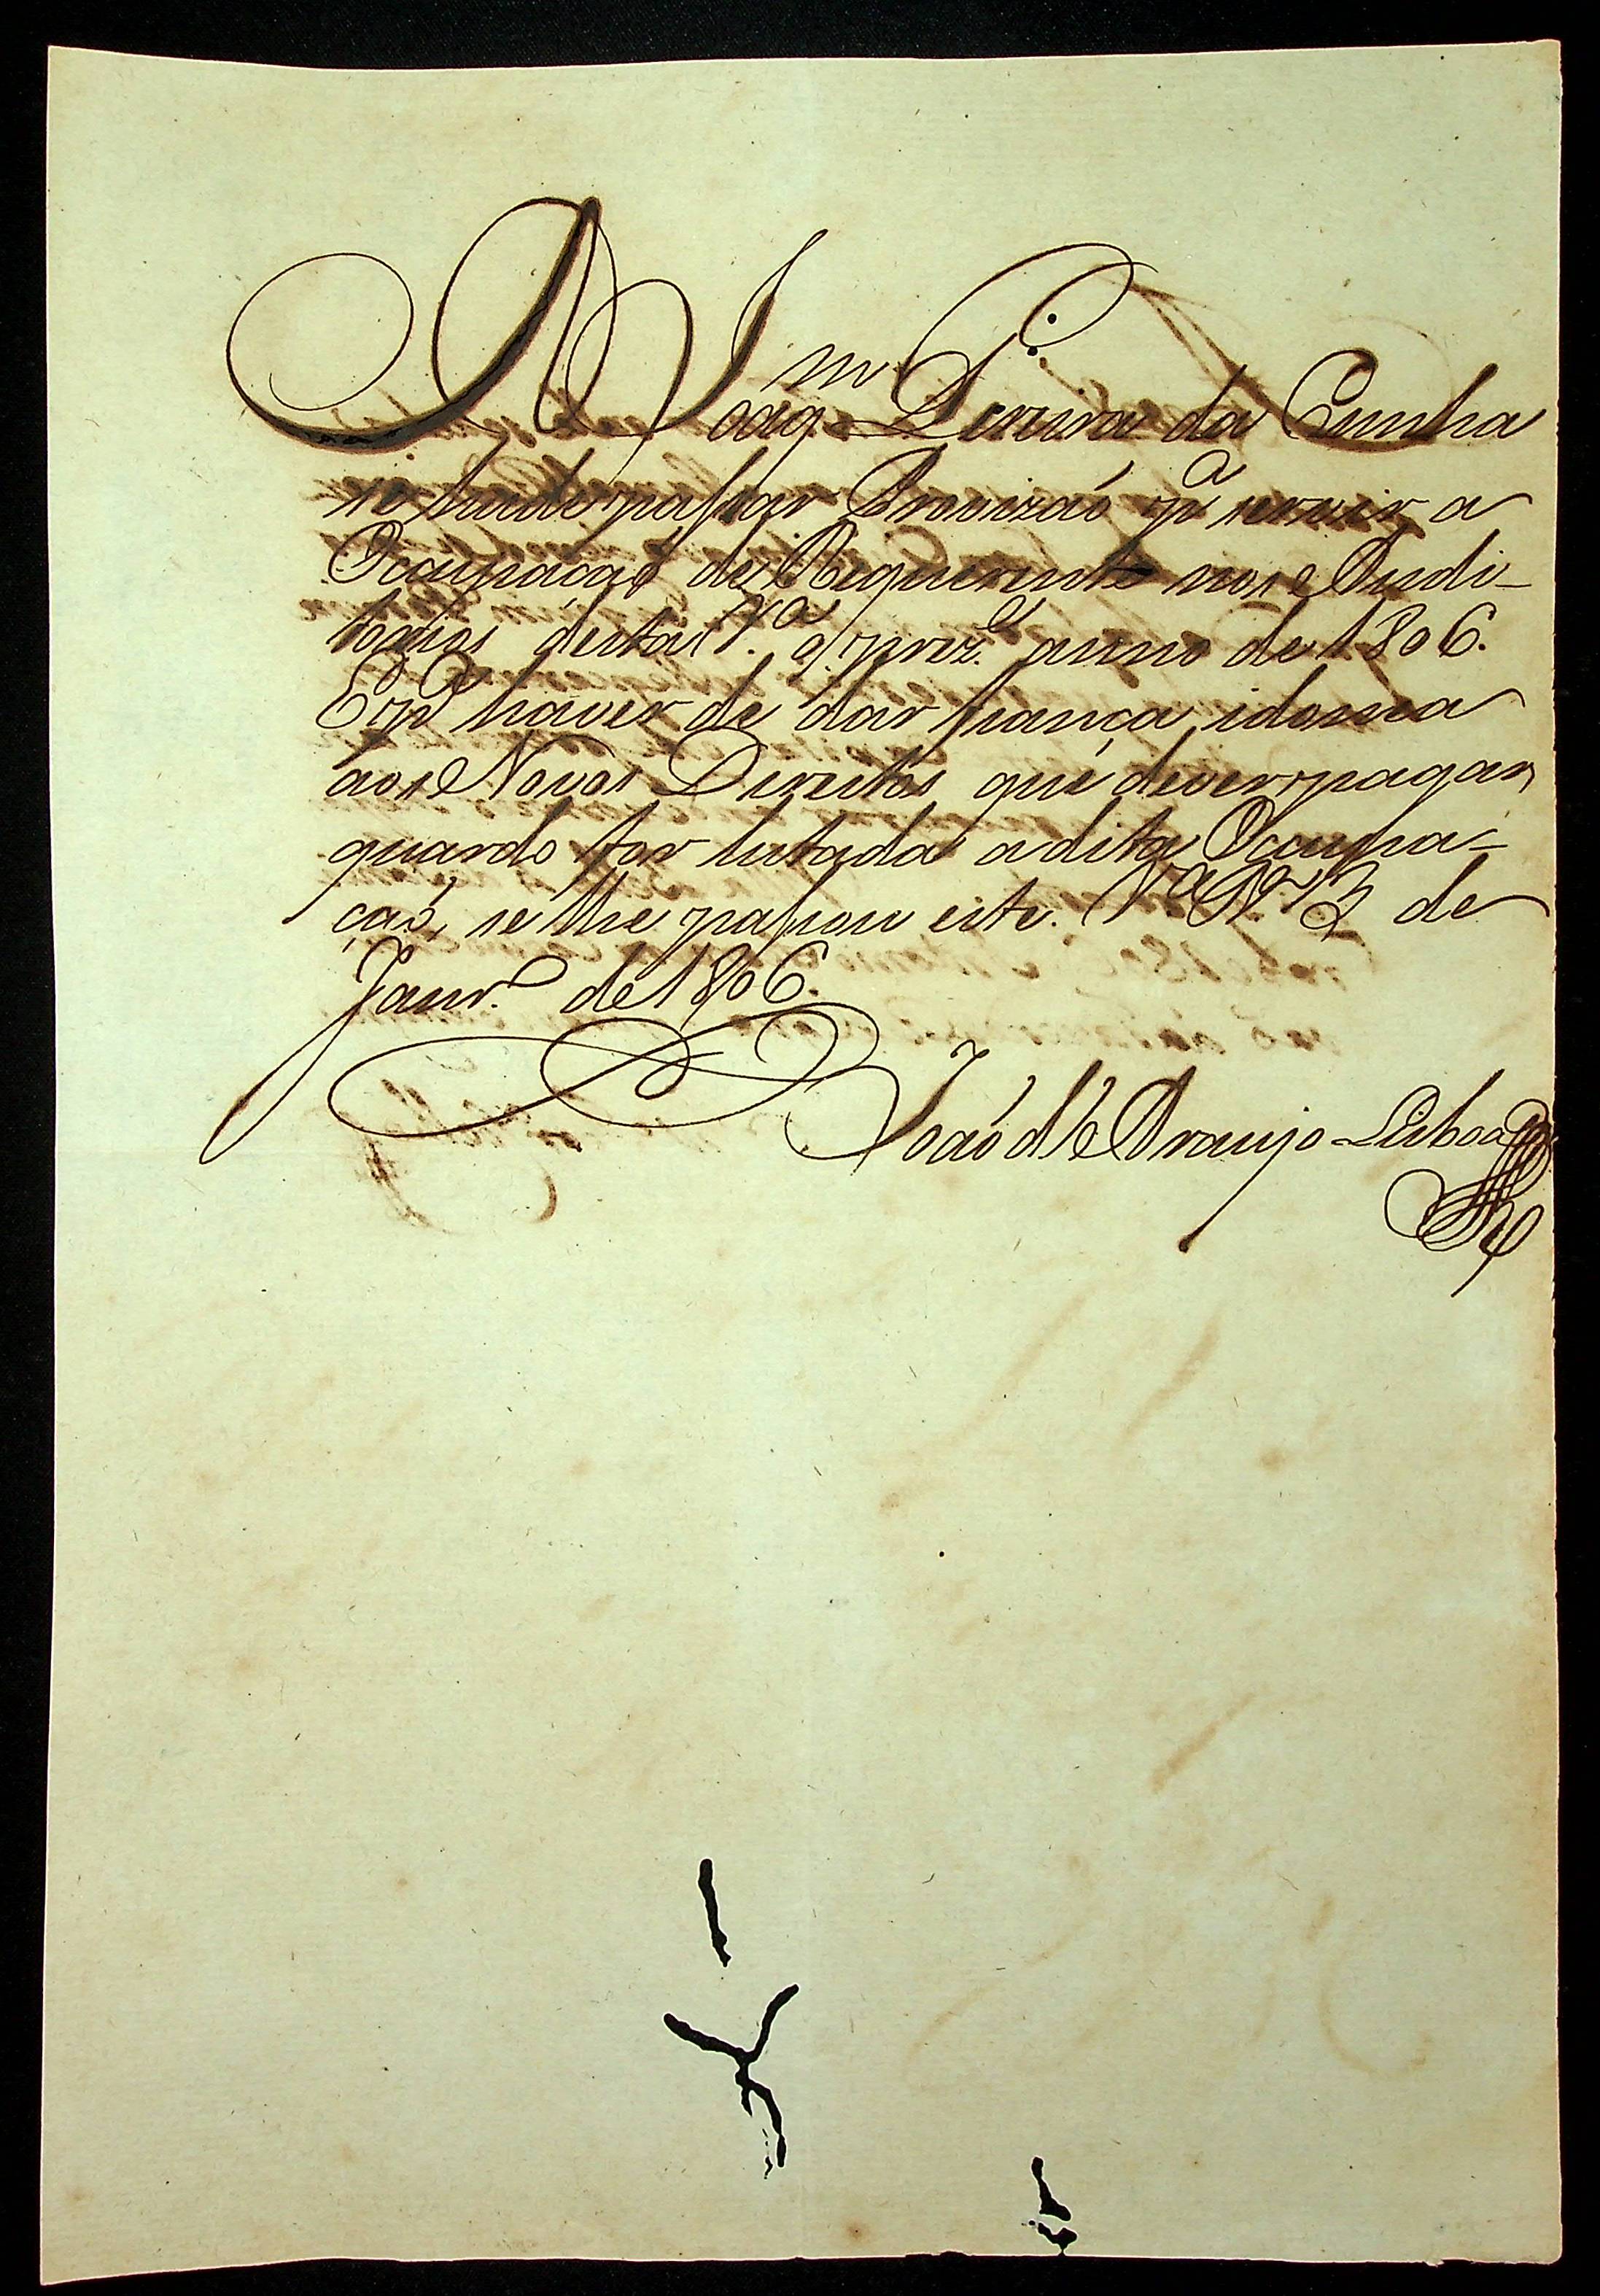 A Joaq.m Pereira da Cunha
se hade passar Provizaó p.a servir a
Occupacaó de Requerente nos Audi-
torios desta V.a o prez.e anno de 1806.
E p.a haver de dar fiança idonea
aos Novos Direitos que dever pagar,
quando for lutada a dita Occupa-
çaó, se lhe passou este. V.a R.ca 2 de
Janr.o de 1806.
Joaó d'Araujo Lisboa